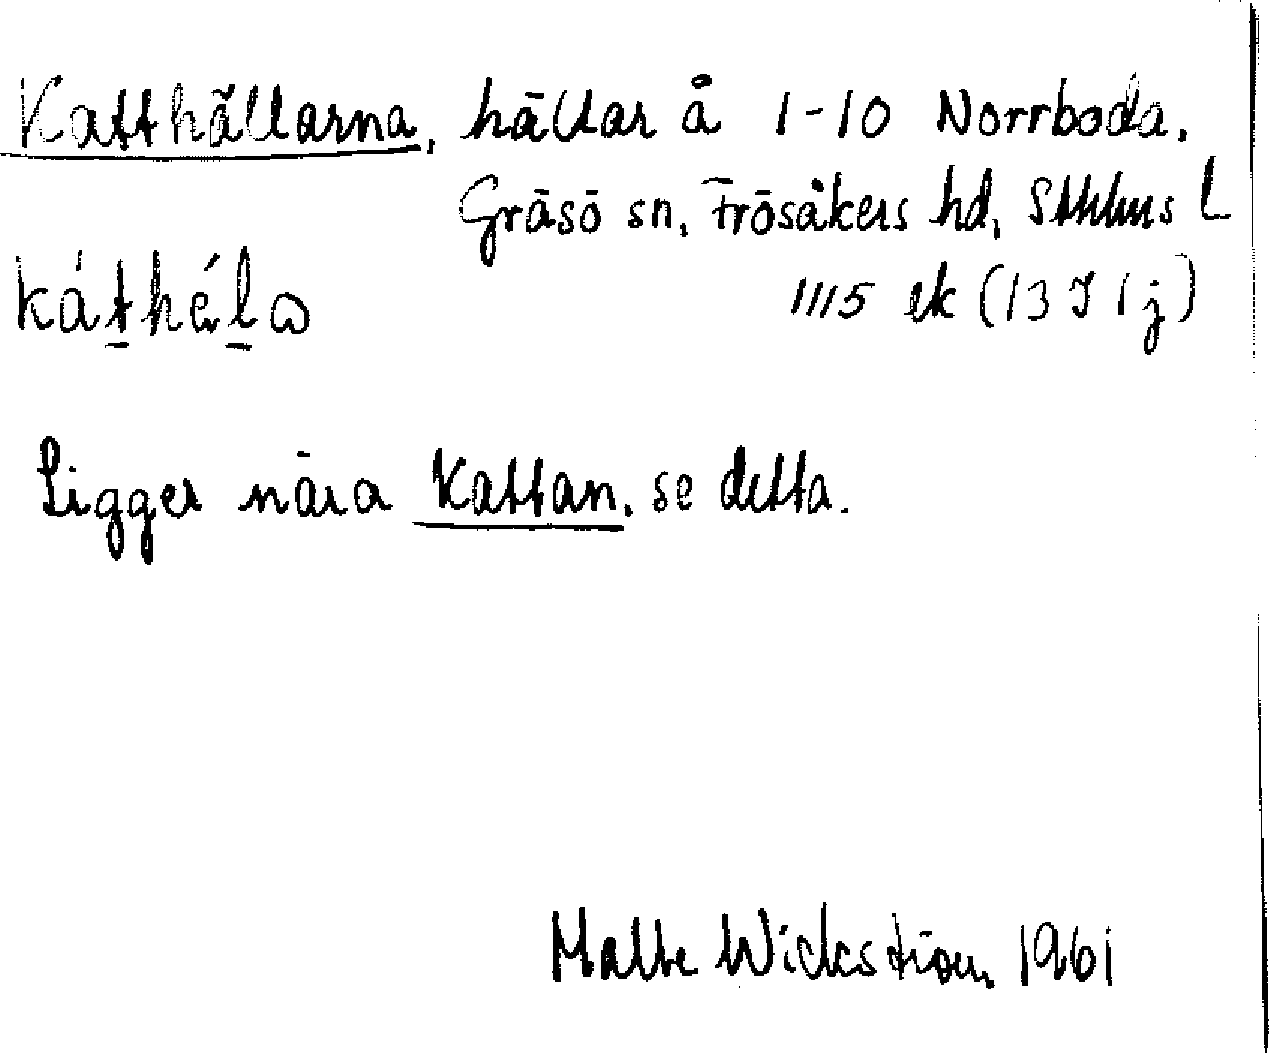 Katthällarna, hällar å 1-10 Norrboda,
Gräsö sn, Frösåkers hd, Sthlms l
káthéla
1115 ek (13 I 1 j)
Ligger nära Kattan, se detta.
Malte Wickström 1961